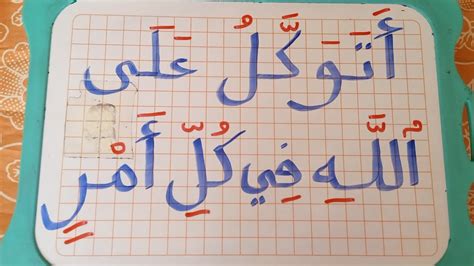 أَتَوَكَّلُ عَلَى
ٱللَّهِ فِي كُلِّ أَمْرٍ